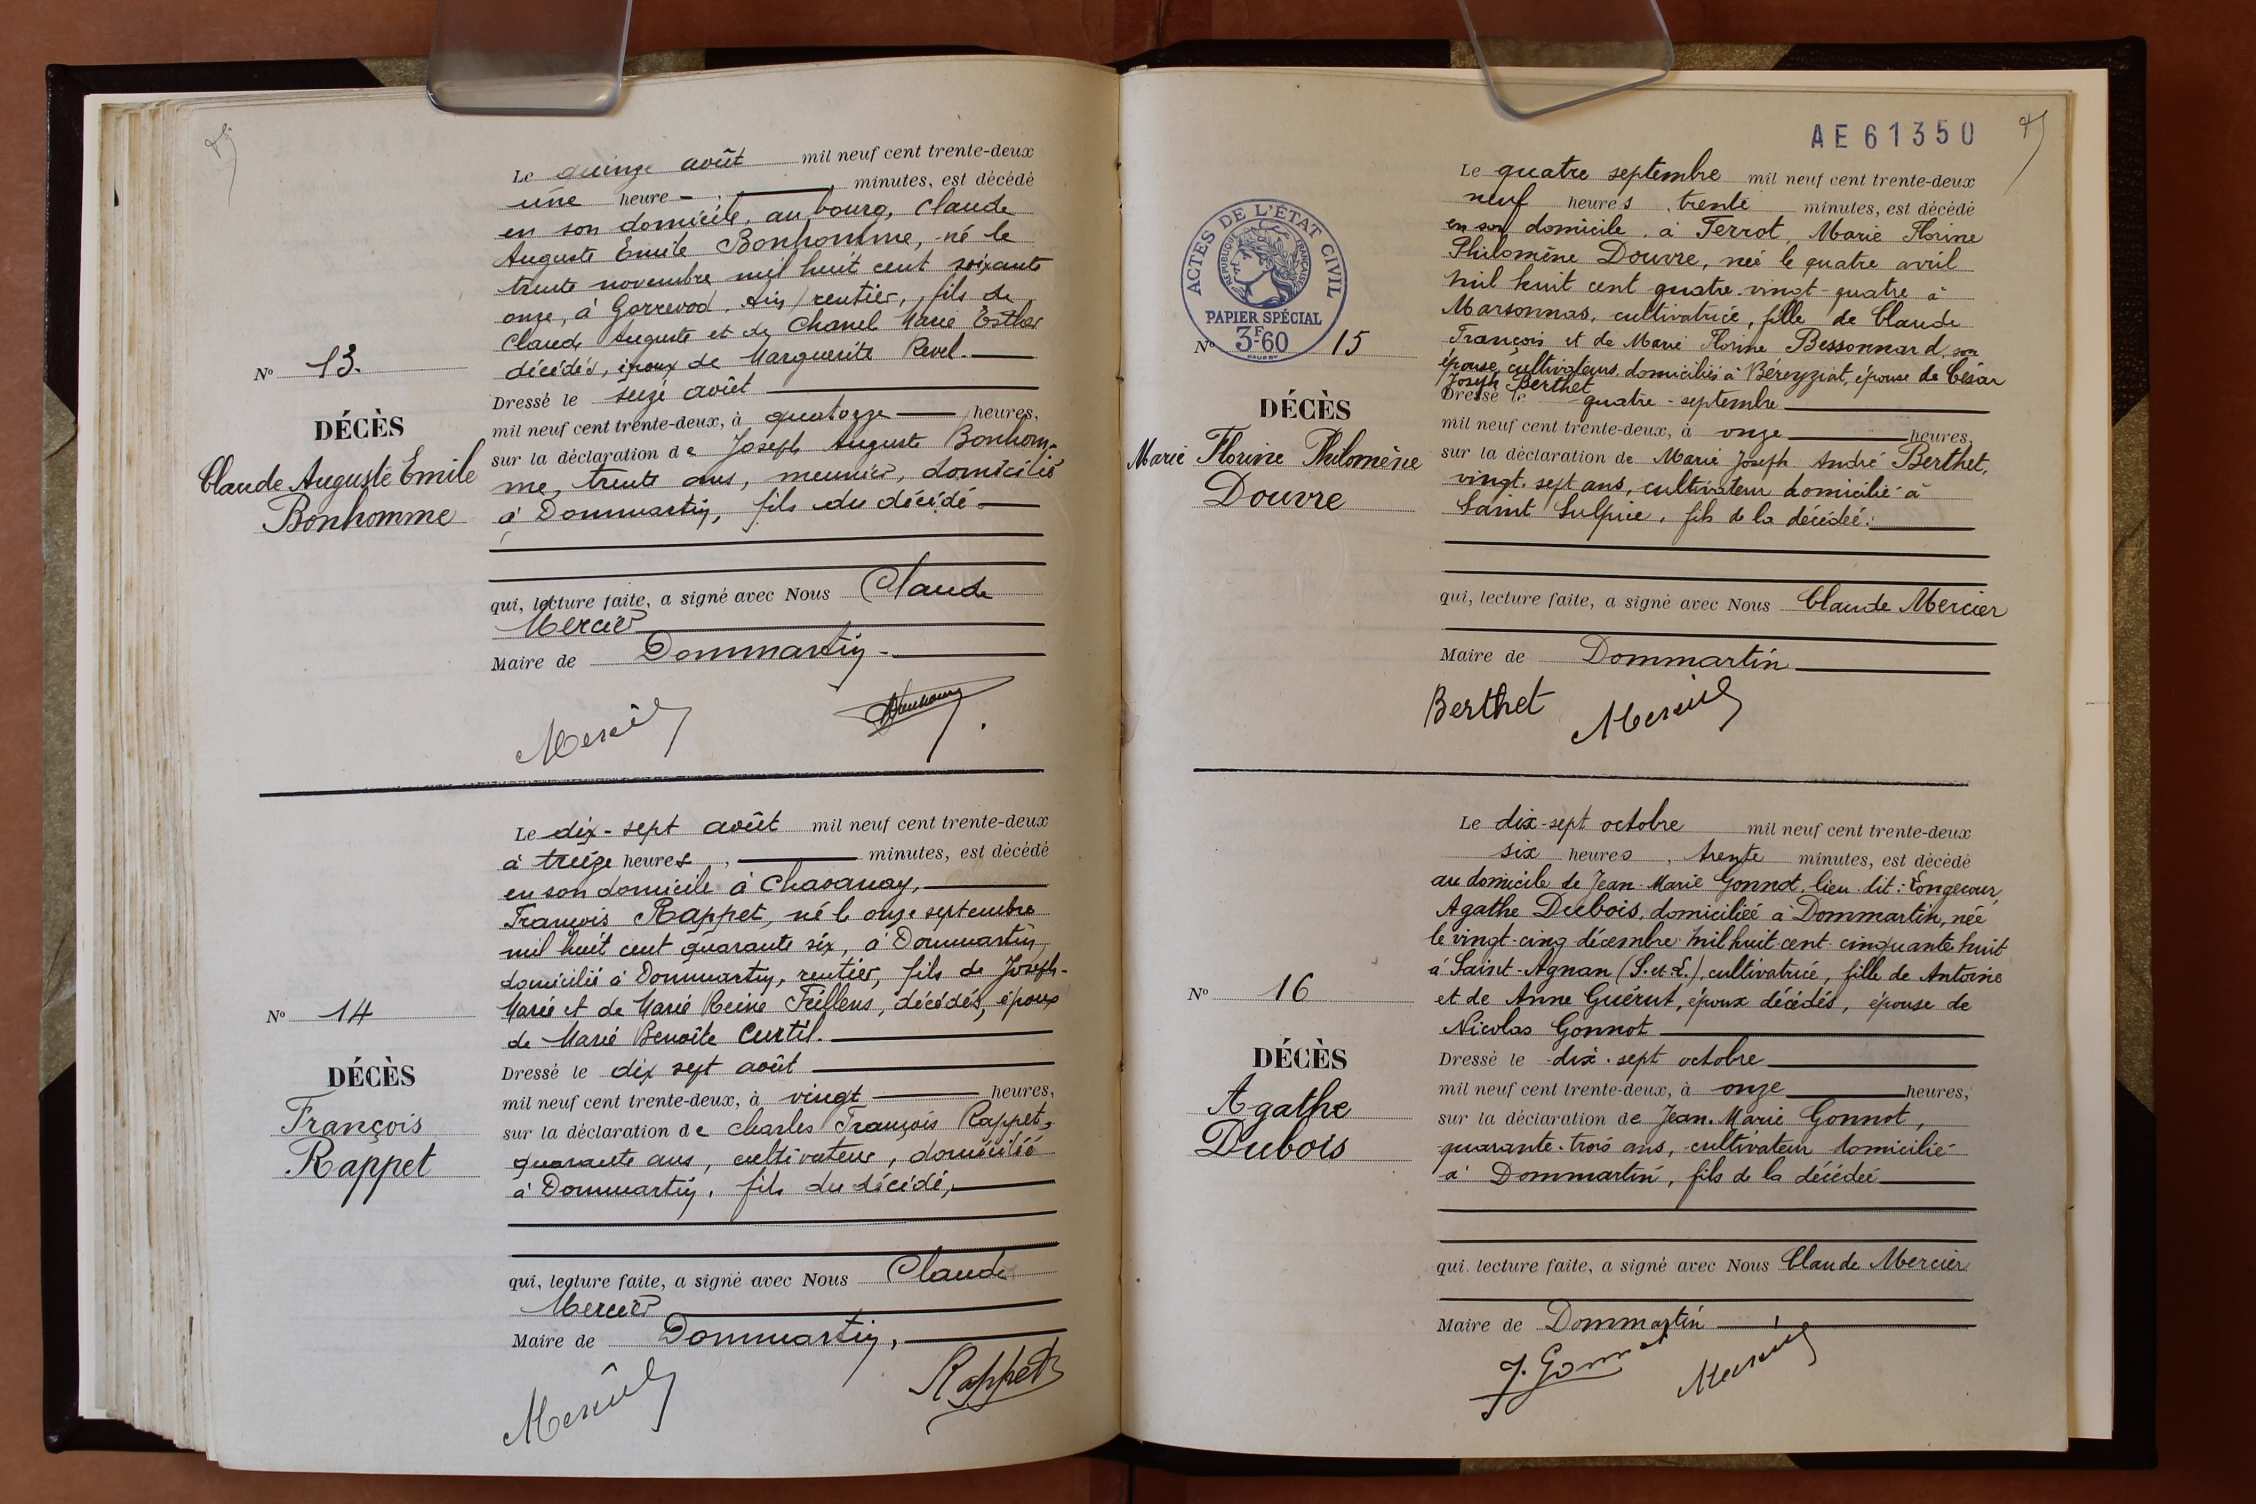 Le quinze août mil neuf cent trente-deux
une heure minutes, est décédé
en son domicile, au bourg, Claude
Auguste Emile Bonhomme, né le
trente novembre mil huit cent soixante
onze, à Gorrevod, Ain, rentier, fils de
Claude Auguste et de Chanel Marie Esther
décédés, époux de Marguerite Revel.
Nº 13.
DÉCÈS
Claude Auguste Emile
Bonhomme
Dressé le seize août
mil neuf cent trente-deux, à quatorze heures,
sur la déclaration de Joseph Auguste Bonhom-
me, trente ans, meunier, domicilié
à Dommartin, fils du décédé
qui, lecture faite, a signé avec Nous Claude
Mercier
Maire de Dommartin
Mercier
Le dix-sept août mil neuf cent trente-deux
à treize heures, minutes, est décédé
en son domicile à Chavanay,
François Rappet, né le onze septembre
mil huit cent quarante six, à Dommartin,
domicilié à Dommartin, rentier, fils de Joseph-
Marie et de Marie Reine Feillens, décédés, époux
de Marie Benoîte Curtil.
Nº 14
DÉCÈS
François
Rappet
Dressé le dix sept août
mil neuf cent trente-deux, à vingt heures,
sur la déclaration de Charles François Rappet,
quarante ans, cultivateur, domicilié
à Dommartin, fils du décédé,
qui, lecture faite, a signé avec Nous Claude
Mercier
Maire de Dommartin,
Mercier Rappet
AE 61350
ACTES DE L'ÉTAT CIVIL
RÉPUBLIQUE FRANÇAISE
PAPIER SPÉCIAL
3F.60
Le quatre septembre mil neuf cent trente-deux
neuf heures trente minutes, est décédé
en son domicile, à Ferrot, Marie Florine
Philomène Douvre, née le quatre avril
mil huit cent quatre-vingt-quatre à
Marsonnas, cultivatrice, fille de Claude
François et de Marie Florine Bessonnard, son
épouse, cultivateurs, domiciliés à Béreyziat, épouse de César
Joseph Berthet
Nº 15
DÉCÈS
Marie Florine Philomène
Douvre
Dressé le quatre-septembre
mil neuf cent trente-deux, à onze heures,
sur la déclaration de Marie Joseph André Berthet,
vingt-sept ans, cultivateur domicilié à
Saint Sulpice, fils de la décédée.
qui, lecture faite, a signé avec Nous Claude Mercier
Maire de Dommartin
Berthet Mercier
Le dix-sept octobre mil neuf cent trente-deux
six heures, trente minutes, est décédé
au domicile de Jean-Marie Gonnot, lieu dit: Longecour,
Agathe Dubois, domiciliée à Dommartin, née
le vingt-cinq décembre mil huit cent cinquante huit
à Saint-Agnan (S. et L.), cultivatrice, fille de Antoine
et de Anne Guérut, époux décédés, épouse de
Nicolas Gonnot
Nº 16
DÉCÈS
Agathe
Dubois
Dressé le dix-sept octobre
mil neuf cent trente-deux, à onze heures,
sur la déclaration de Jean-Marie Gonnot,
quarante-trois ans, cultivateur domicilié
à Dommartin, fils de la décédée
qui, lecture faite, a signé avec Nous Claude Mercier
Maire de Dommartin
J. Gonnot Mercier